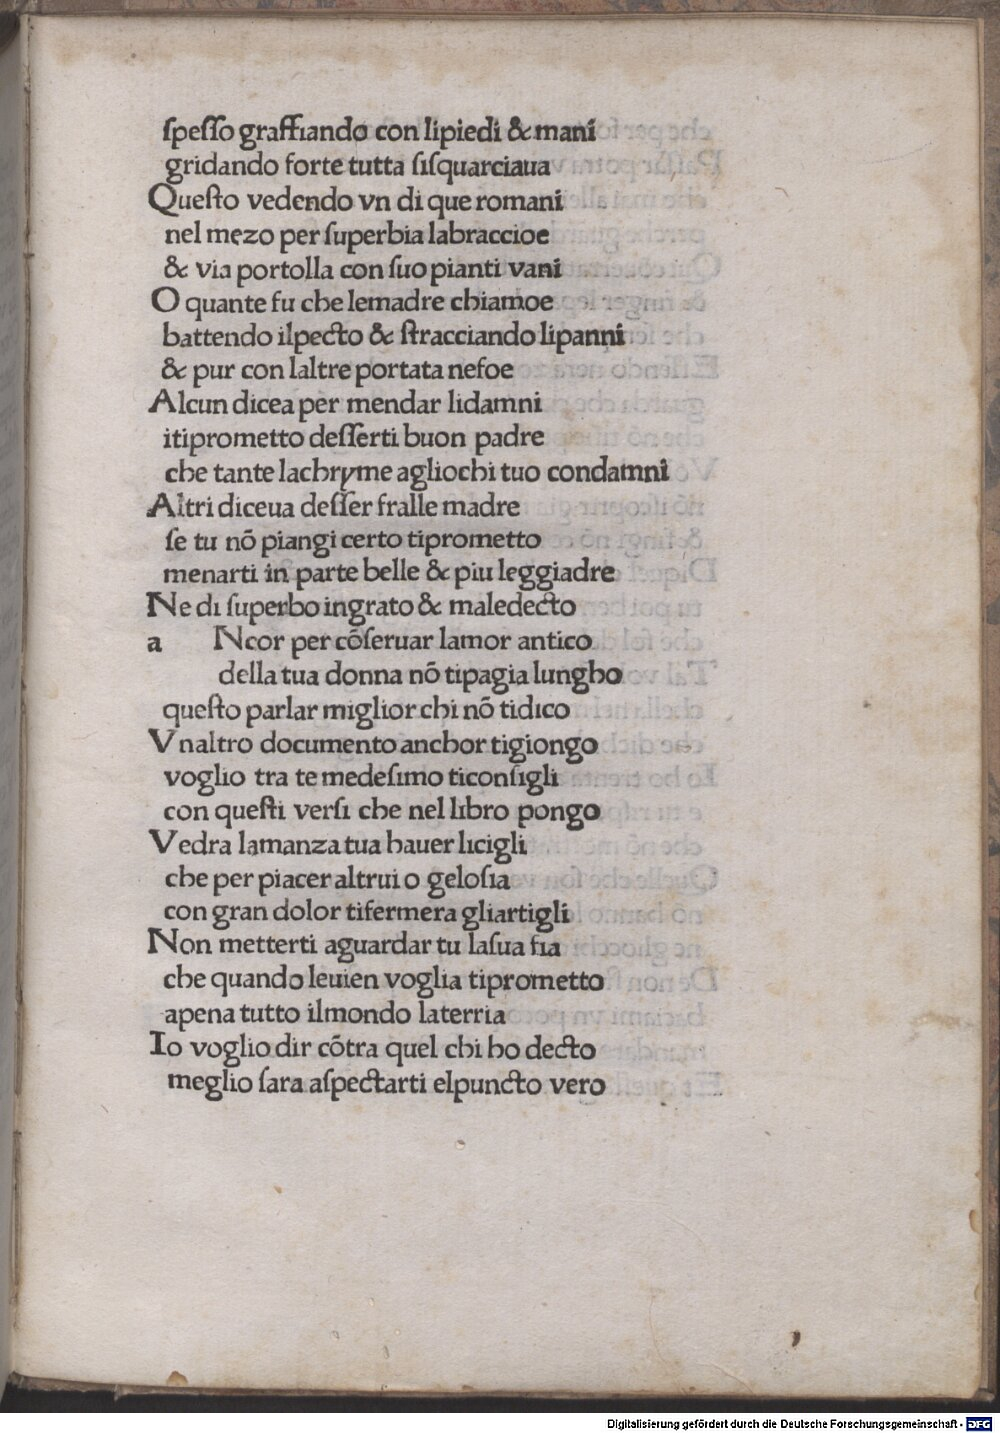 ſpeſſo graffiando con lipiedi & mani
gridando forte tutta ſiſquarciaua
Queſto vedendo vn di que romani
nel mezo per ſuperbia labraccioe
& via portolla con ſuo pianti vani
O quante fu che lemadre chiamoe
battendo ilpecto & ſtracciando lipanni
& pur con laltre portata nefoe
Alcun dicea per mendar lidamni
itiprometto deſſerti buon padre
che tante lachryme agliochi tuo condamni
Altri diceua deſſer fralle madre
ſe tu nõ piangi certo tiprometto
menarti in parte belle & piu leggiadre
Ne di ſuperbo ingrato & maledecto
a Ncor per cõſeruar lamor antico
della tua donna nõ tipagia lungho
queſto parlar miglior chi nõ tidico
Vnaltro documento anchor tigiongo
voglio tra te medeſimo ticonſigli
con queſti verſi che nel libro pongo
Vedra lamanza tua hauer licigli
che per piacer altrui o geloſia
con gran dolor tifermera gliartigli
Non metterti aguardar tu laſua fia
che quando leuien voglia tiprometto
apena tutto ilmondo laterria
Io voglio dir cõtra quel chi ho decto
meglio ſara aſpectarti elpuncto vero
Digitalisierung gefördert durch die Deutsche Forschungsgemeinschaft - DFG